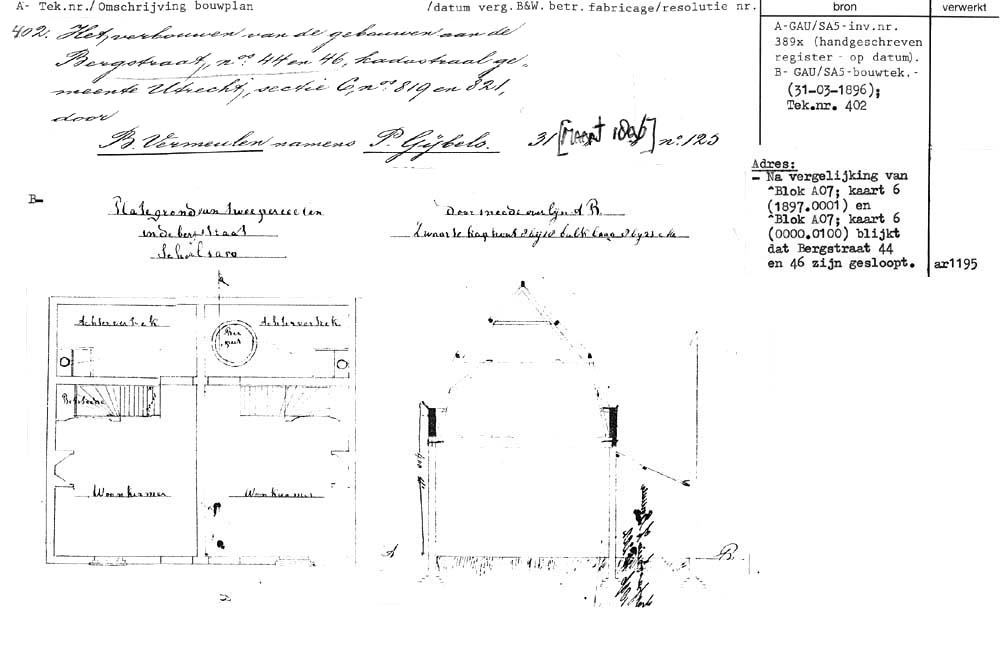 A- Tek.nr./Omschrijving bouwplan
/datum verg.B&W. betr. fabricage/resolutie nr.
bron
verwerkt
402. Het verbouwen van de gebouwen aan de
Bergstraat, nos 44 en 46, kadastraal ge-
meente Utrecht, sectie C, nos 819 en 821,
door
B. Vermeulen namens P. Gijbels. 31 [MAART 1896] no. 125
A-GAU/SA5-inv.nr.
389x (handgeschreven
register - op datum).
B- GAU/SA5-bouwtek.-
(31-03-1896);
Tek.nr. 402
Adres:
- Na vergelijking van
^Blok A07; kaart 6
(1897.0001) en
^Blok A07; kaart 6
(0000.0100) blijkt
dat Bergstraat 44
en 46 zijn gesloopt.
ar1195
B-
Plategrond van twee perceelen
in de bergstraat
Doorsneede over lijn A B
Achtervertrek
Achtervertrek
Woonkamer
Woonkamer
A
B